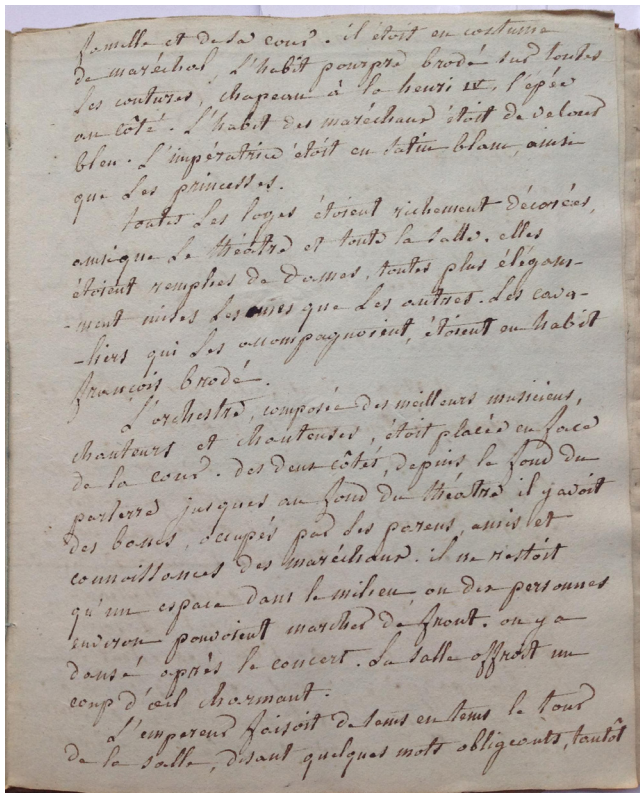 famille et de sa cour. il étoit en costume
de maréchal, L'habit pourpre brodé sur toutes
les coutures, chapeau à la henri IV, l'épée
au côté. L'habit des maréchaux étoit de velour
bleu. L'impératrice étoit en satin blanc, ainsi
que les princesses.
toutes les loges étoient richement décorées,
ainsi que le théatre et toute la salle. elles
étoient remplies de dames, toutes plus élégam-
-ment mises les unes que les autres. Les cava-
-liers qui les accompagnoient, étoient en habit
françois brodé.
L'orchestre, composée des meilleurs musiciens,
chanteurs et chanteuses, étoit placée en face
de la cour. des deux côtés, depuis le fond du
parterre jusques au fond du théatre il y avoit
des bancs, occupés par les parens, amis et
connoissances des maréchaux. il ne restoit
qu'un espace dans le milieu, ou dix personnes
environ pouvoient marcher de front. on y a
dansé après le concert. La salle offroit un
coup d'œil charmant.
L'empereur faisoit de tems en tems le tour
de la salle, disant quelques mots obligeants, tantôt